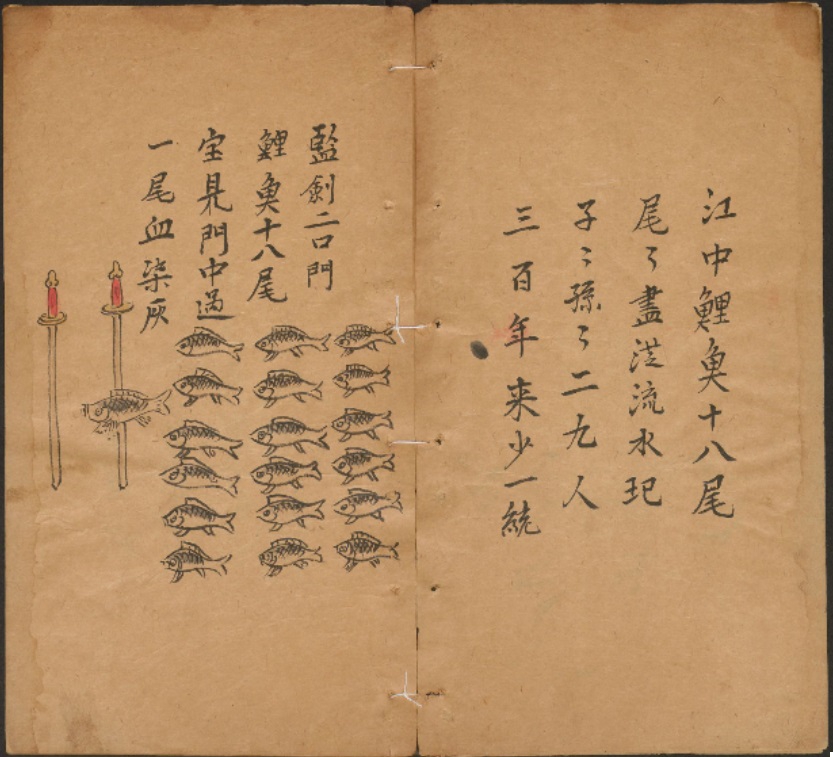 江中鯉魚十八尾
尾々盡泩流水玘
子々孫々二九人
三百年来少一統
監劍二口門
鯉魚十八尾
宝見門中過
一尾血柒灰